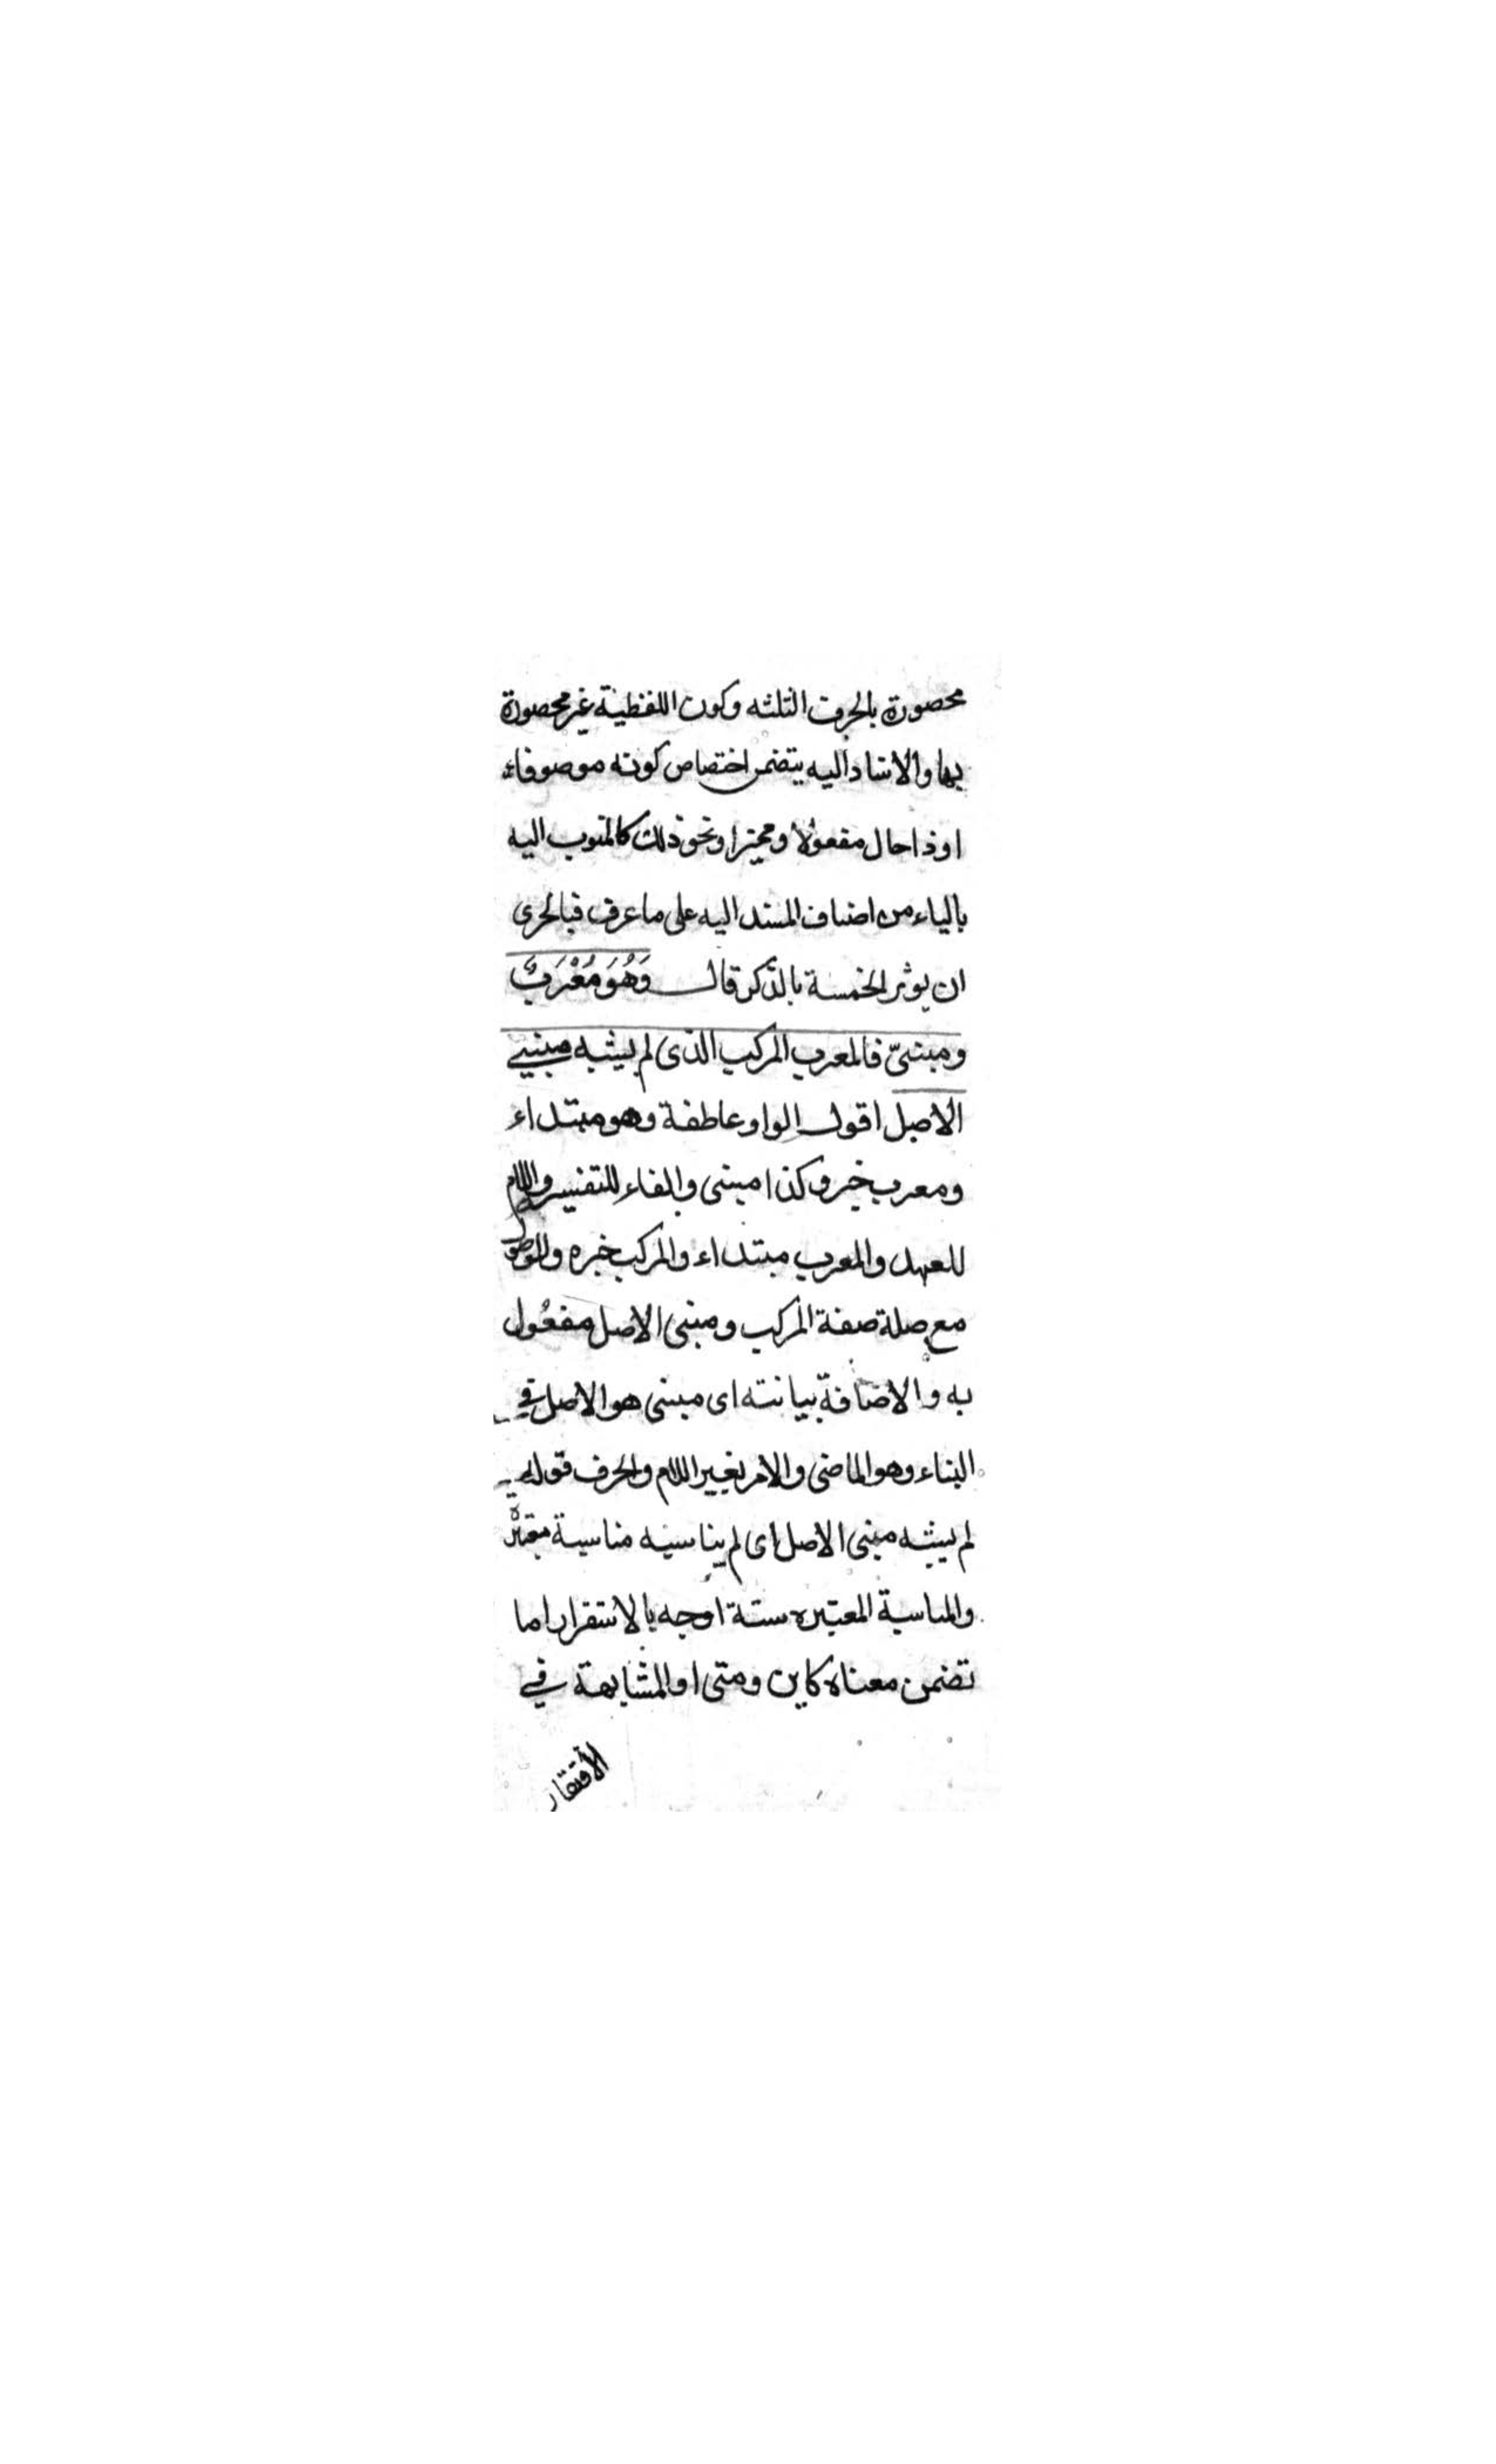 محصورة بالحرف الثلثه وكون اللفظية غير محصورة
بها والاسناد اليه يتضمن اختصاص كونه موصوفا
اوذا حال مفعولا ومميزا ونحو ذلك كالمنسوب اليه
بالياء من اضاف المسند اليه على ما عرف فبالحرى
ان يوثر الخمسة بالذكر قال وَهُوَ مُعْرَبٌ
ومبنىّ فالمعرب المركب الذى لم يشبه مبنىي
الاصل اقول الواو عاطفة وهو مبتداء
ومعرب خبر وكذا مبنى والفاء للتفسير واللام
للعهد والمعرب مبتداء والمركب خبره والموصول
مع صلة صفة المركب ومبنى الاصل مفعُول
به والاضافة بيانته اى مبنى هو الاصل في
البناء وهو الماضى والامر بغير اللام والحرف قوله
لم يشبه مبنى الاصل اى لم يناسبه مناسبة معتبرة
والمناسبة المعتبره ستة اوجه بالاستقرار اما
تضمن معناه كاين ومتى او المشابهة في
الافتقار